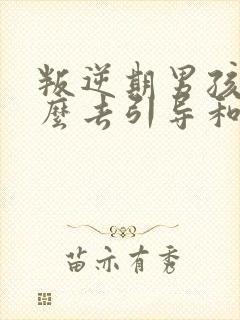 叛逆期男孩
麼去引导和
苗亦有秀